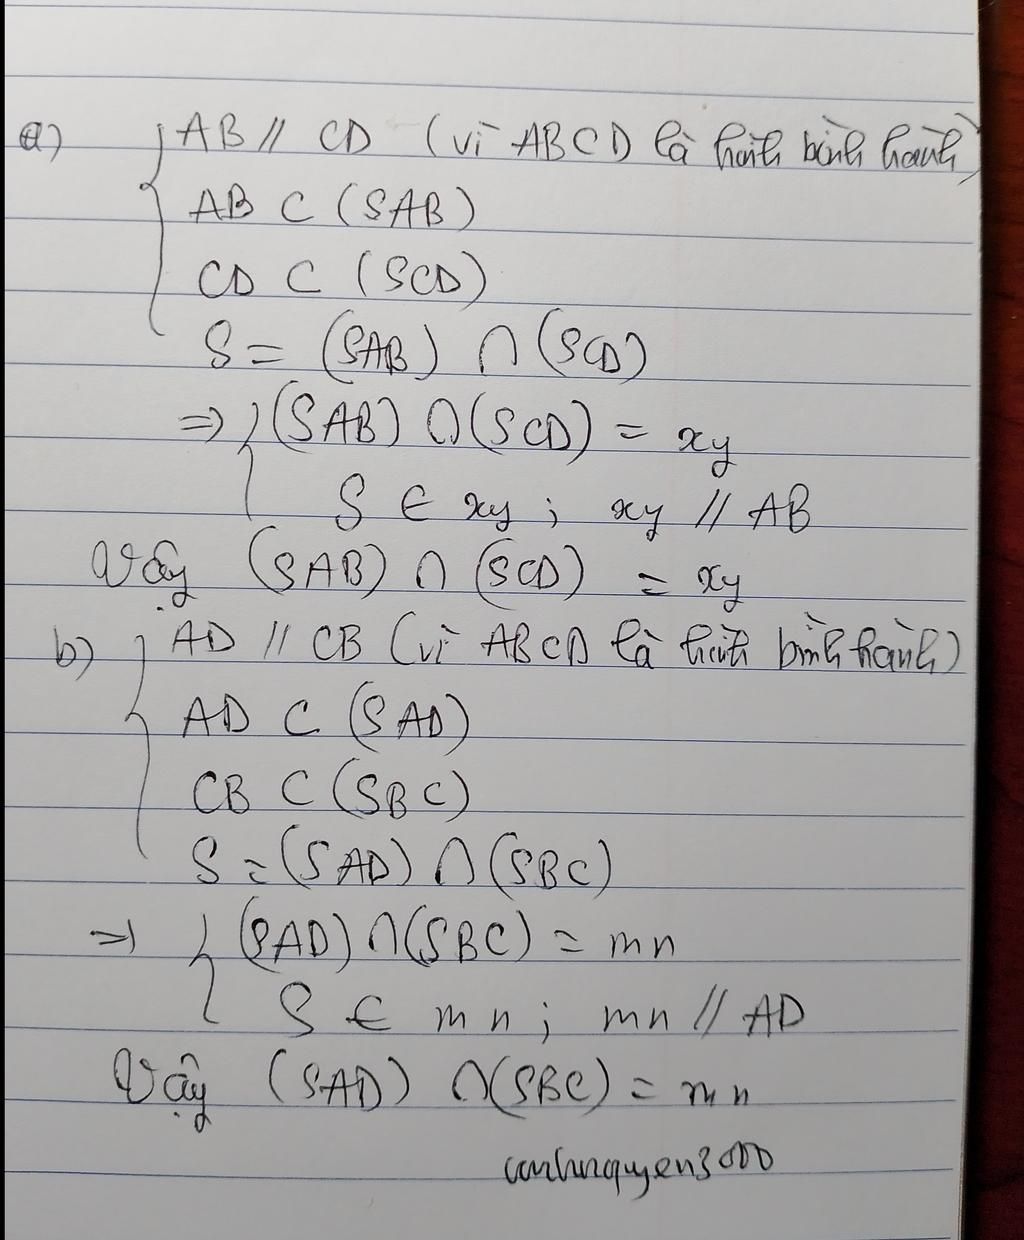 a) { AB // CD (vì ABCD là hình bình hành)
AB ⊂ (SAB)
CD ⊂ (SCD)
S = (SAB) ∩ (SCD)
=> { (SAB) ∩ (SCD) = xy
S ∈ xy ; xy // AB
Vậy (SAB) ∩ (SCD) = xy
b) { AD // CB (vì ABCD là hình bình hành)
AD ⊂ (SAD)
CB ⊂ (SBC)
S = (SAD) ∩ (SBC)
=> { (SAD) ∩ (SBC) = mn
S ∈ mn ; mn // AD
Vậy (SAD) ∩ (SBC) = mn